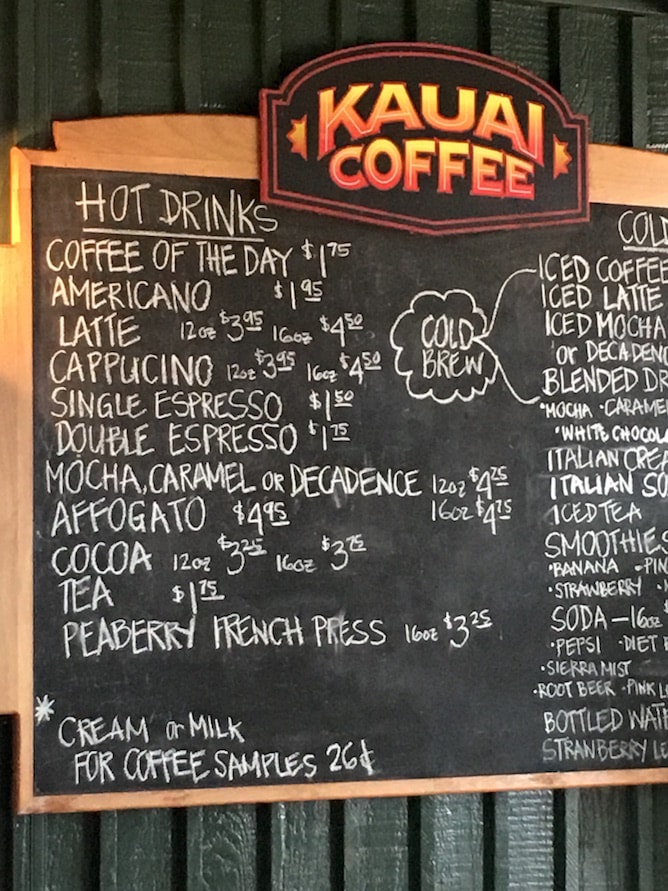 KAUAI
COFFEE
HOT DRINKS
COFFEE OF THE DAY $1 75
AMERICANO $1 95
LATTE 12oz $3 95 16oz $4 50
CAPPUCINO 12oz $3 95 16oz $4 50
SINGLE ESPRESSO $1 50
DOUBLE ESPRESSO $1 75
MOCHA, CARAMEL or DECADENCE 12oz $4 25
16oz $4 75
AFFOGATO $4 95
COCOA 12oz $3 25 16oz $3 75
TEA $1 75
PEABERRY FRENCH PRESS 16oz $3 25
* CREAM or MILK
FOR COFFEE SAMPLES 26¢
COLD
BREW
COLD
ICED COFFEE
ICED LATTE
ICED MOCHA
or DECADENC
BLENDED DR
•MOCHA •CARAMEL
•WHITE CHOCOLA
ITALIAN CREA
ITALIAN SO
ICED TEA
SMOOTHIES
•BANANA •PIN
•STRAWBERRY
SODA – 16oz
•PEPSI •DIET
•SIERRA MIST
•ROOT BEER •PINK L
BOTTLED WAT
STRANBERRY LE